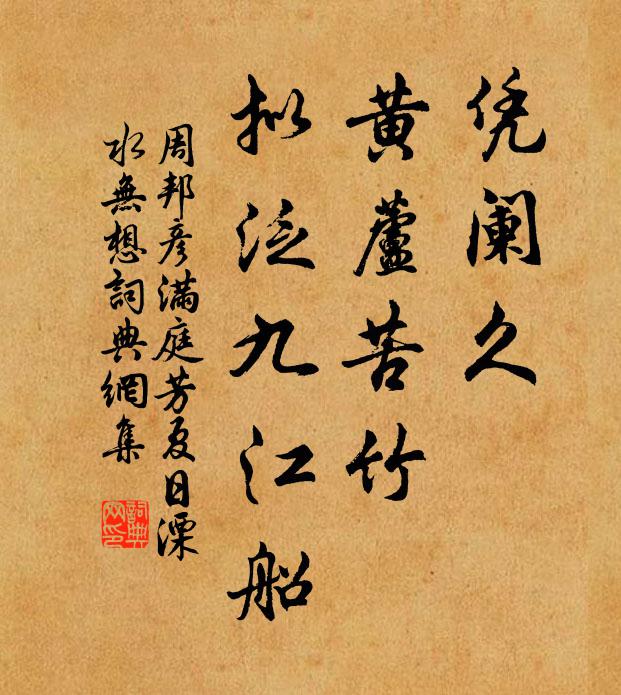 凭阑久
黄蘆苦竹
拟泛九江船
周邦彦滿庭芳夏日溧
水無想詞典網集
詞典
网印